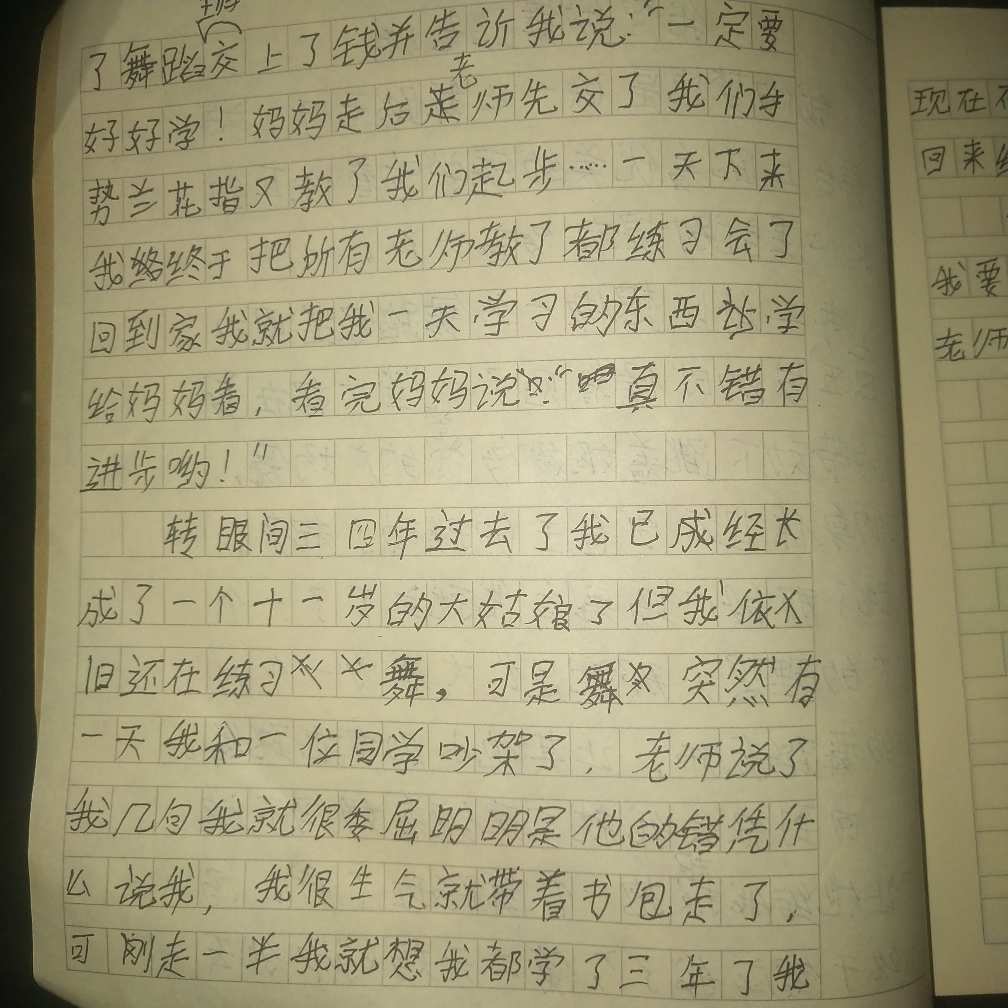 班
了舞蹈交上了钱并告诉我说:“一定要
老
好好学!妈妈走后走师先交了我们手
势兰花指又教了我们起步……一天下来
我终终于把所有老师教了都练习会了
回到家我就把我一天学习的东西学
给妈妈看,看完妈妈说:“真不错有
进步哟!”
转眼间三四年过去了我已成经长
成了一个十一岁的大姑娘了但我依
旧还在练习舞,可是舞突然有
一天我和一位同学吵架了,老师说了
我几句我就很委屈明明是他的错凭什
么说我,我很生气就带着书包走了,
可刚走一半我就想我都学了三年了我
现在
回来
我要
老师